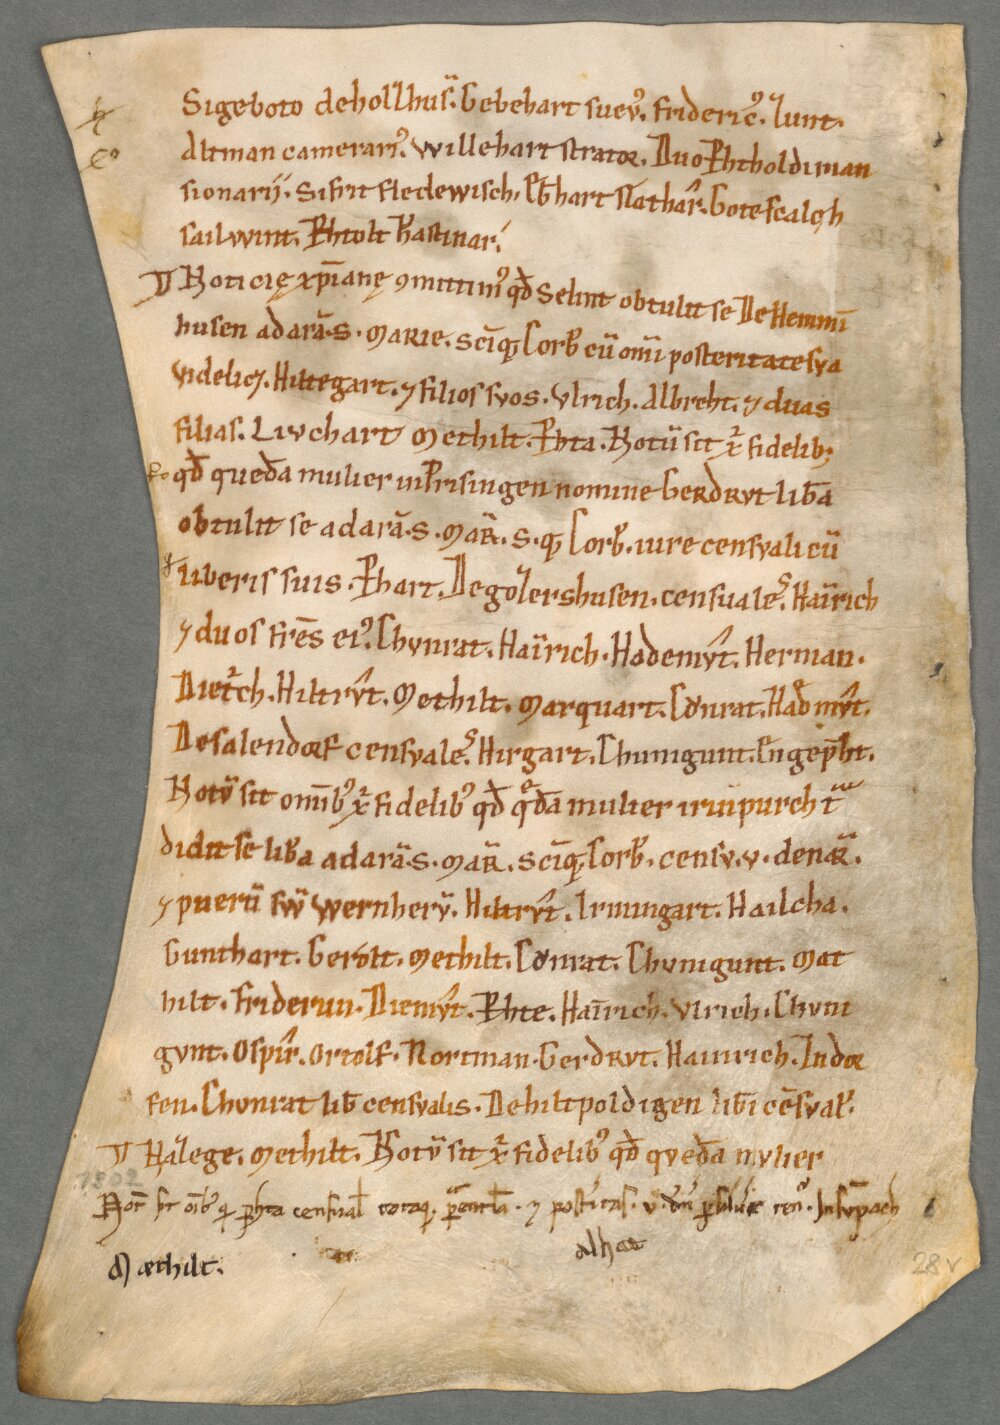 Sigeboto de holzhusͥ. Gebehart sueuꝰ. Fridericꝰ. Zunt.
Altman camerariꝰ. Willehart strator. Duo Ꝑhtholdi man
sionarij. Sifrit Fledewisch. Eb̄hart slathar̄. Gotescalch
sailwint. Ꝑhtolt Kastinar̄.
Noticię xp̄ianę ꝯmittimꝰ qd̄ Selint obtulit se De Hemmī
husen ad arā. S. MARIE. Scīq; Corb̄ cū om̄i posteritate sva
videlicꝫ. Hiltegart. ⁊ filios svos. Vlrich. Albreht. ⁊ duas
filias. Livchart Methilt. Ꝑhta. Notū sit xͬ fidelibꝫ
qd̄ queda mulier in Prisingen nomine GERDRVT lib̄a
obtulit se ad arā. S. MAR̄. S. q; Corb̄. iure censvali cū
liberis suis. Ꝑhart. De golershusen. censualeˢ. Hainrich
⁊ duos fr̄es eiꝰ. Chvnrat. Hainrich. Hademvt. Herman.
Dietͬch. Hiltrvt. Methilt. Marquart. Cvnrat. Hadmvt.
De salendorf censvaleˢ. Hirgart. Chunigunt. Engepͬht.
Notū sit omībꝰ xͬ fidelibꝰ qd̄ qͤda mulier irmpurch t
didit se lib̄a ad arā. S. MAR̄. Scīq; Corb̄. censv. v. denar̄.
⁊ puerū sw̄ Wernherv̄. Hiltrvt. Irmingart. Hailcha.
Gunthart. Gerolt. Methilt. Cvnrat. Chvnigunt. Mat
hilt. Friderun. Diemvt. Ꝑhte. Hainrich. Vlrich. Chvni
gvnt. Ospir̄. Ortolf. Nortman. Gerdrvt. Hainrich. Indor
fen. Chvnrat lib̄ censvalis. De hiltpoldigen lib̄i cēsval.
Halege. Methilt. Notū sit xͬ fidelibꝰ qd̄ qveda mvlier
1302
Not̄ sit oīb̄ꝰ q ꝑhta censual̄ totaq;
⁊ post̄itas. v.
Alhat
Mæthilt.
28 v